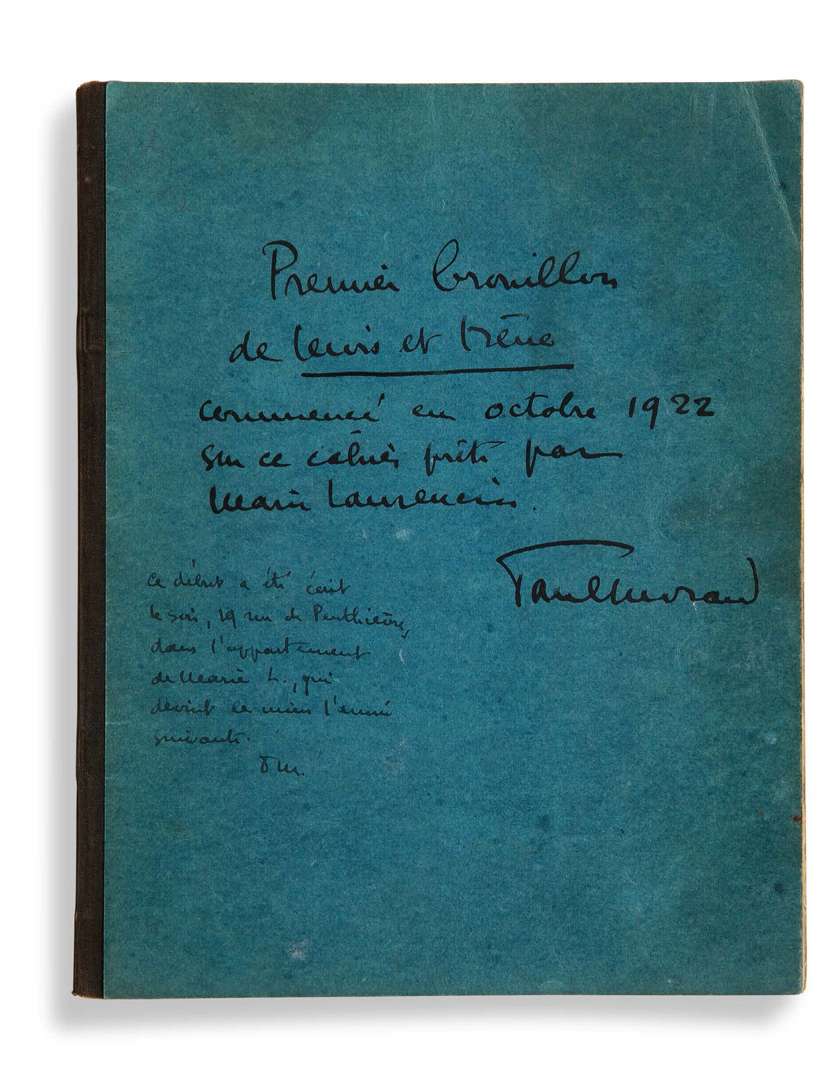 Premier brouillon
de Lewis et Irène
commencé en octobre 1922
sur ce cahier prêté par
Marie Laurencin.
Paul Morand
ce début a été écrit
le soir, 19 rue de Penthièvre,
dans l'appartement
de Marie L., qui
devint le mien l'année
suivante.
P M.